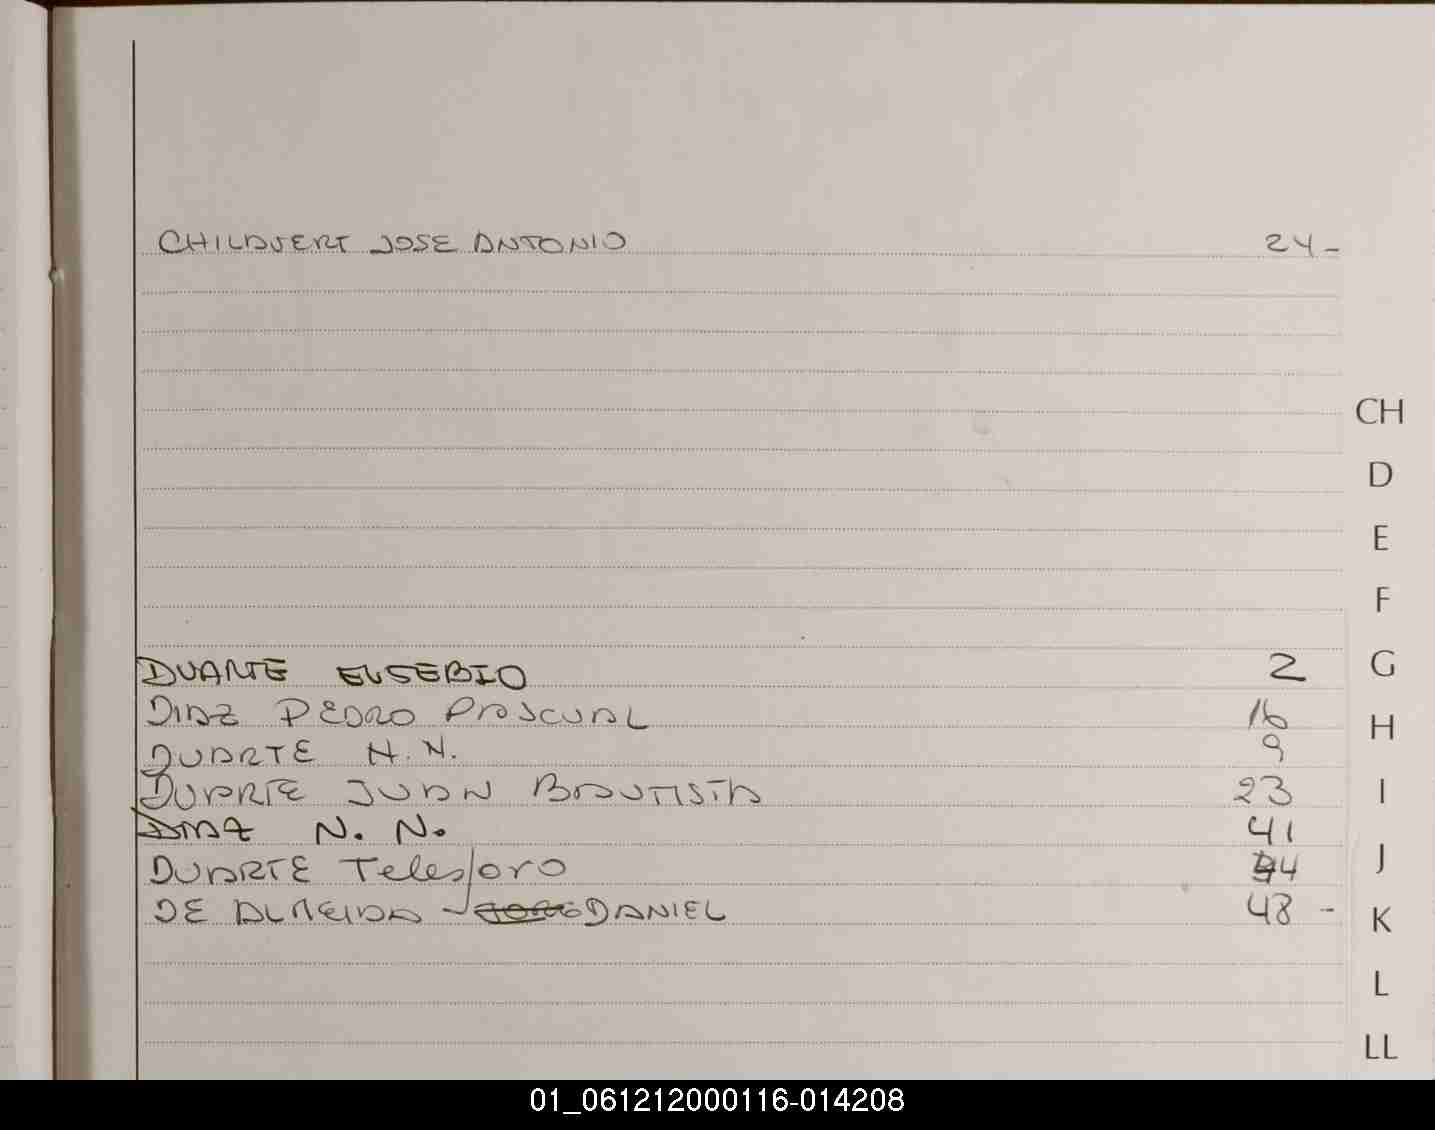 CHILAVERT JOSE ANTONIO 24-
CH
D
E
F
G
DUARTE EUSEBIO 2
DIAZ PEDRO PASCUAL 16
H
DUARTE N.N. 9
DUARTE JUAN BAUTISTA 23
I
DIAZ N. N. 41
DUARTE Telesforo 44
J
DE ALMEIDA DANIEL 48 -
K
L
LL
01_061212000116-014208